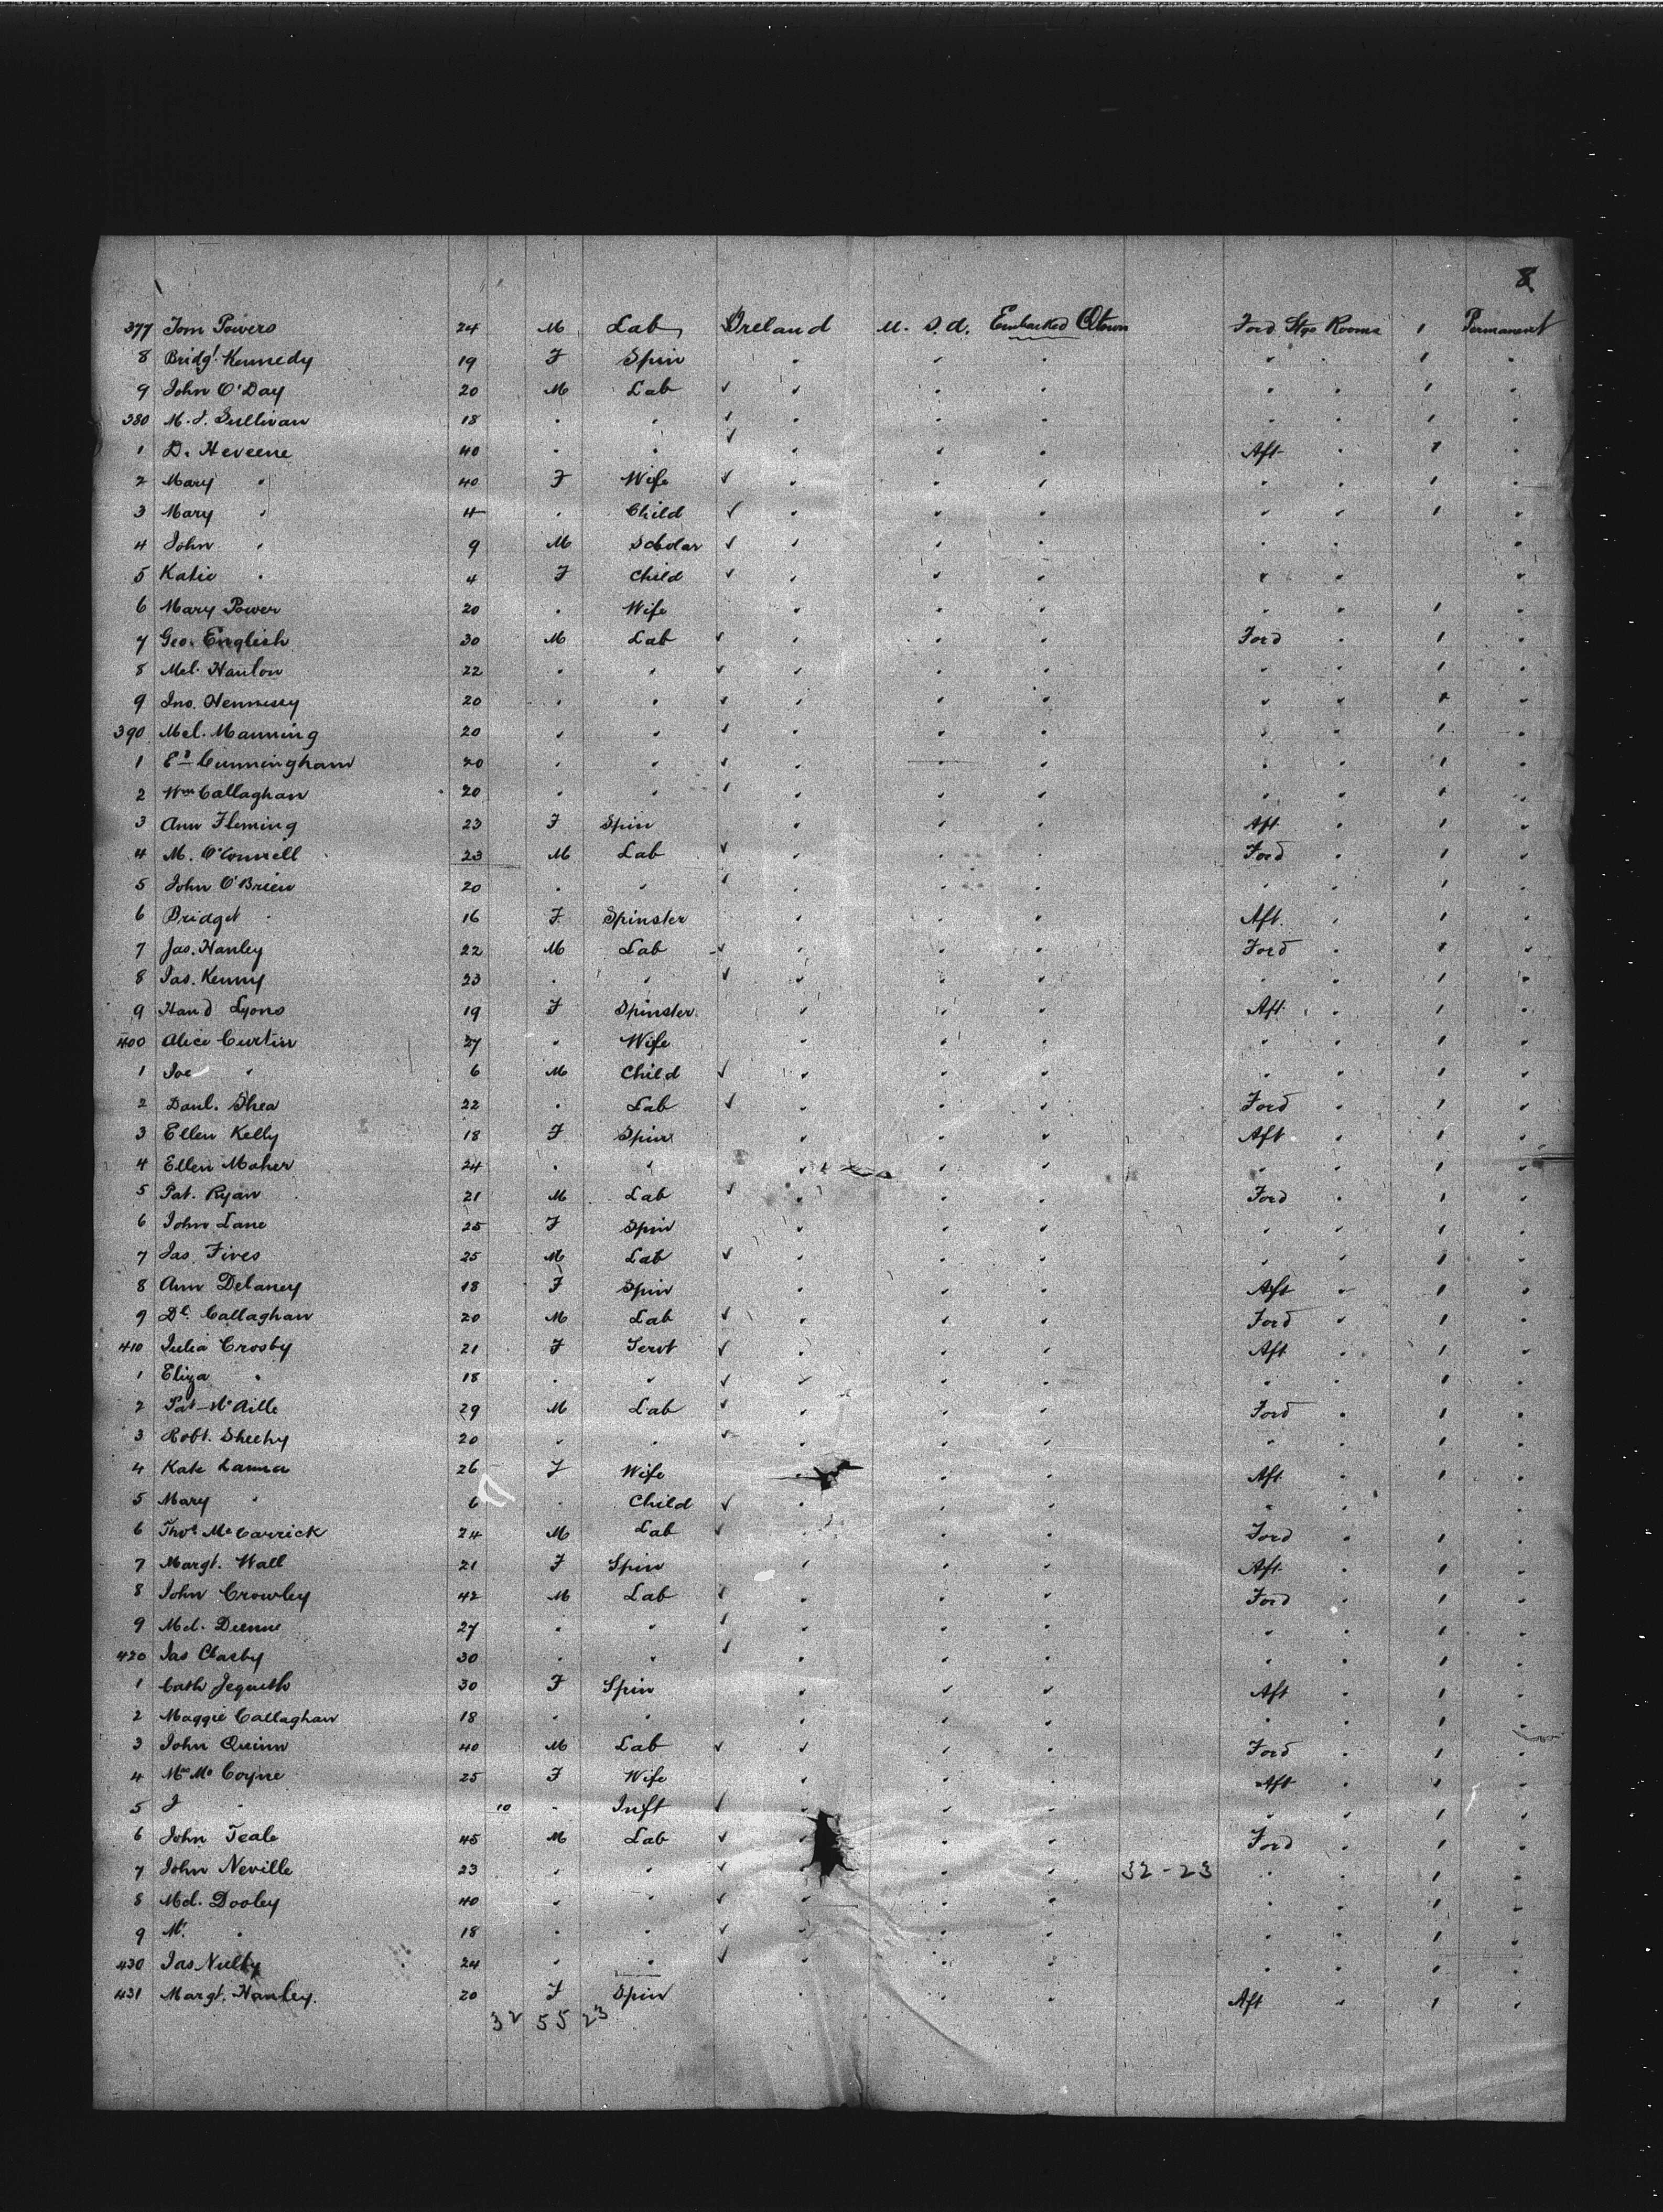 8
377 Tom Powers 24 M Lab Ireland U. S. A. Embarked Qtown Ford Stge Rooms 1 Permanent
8 Bridgt. Kennedy 19 F Spin " " " " " 1 "
9 John O'Day 20 M Lab ✓ " " " " " 1 "
380 M. J. Sullivan 18 " " ✓ " " " " " 1 "
1 D. Heveene 40 " " ✓ " " " Aft " 1 "
2 Mary " 40 F Wife ✓ " " " " " 1 "
3 Mary " 4 " Child ✓ " " " " " 1 "
4 John " 9 M Scholar ✓ " " " " " "
5 Katie " 4 F Child ✓ " " " " " "
6 Mary Power 20 " Wife " " " " " 1 "
7 Geo. English 30 M Lab ✓ " " " Ford " 1 "
8 Mcl. Hanlon 22 " " ✓ " " " " " 1 "
9 Jno. Hennessy 20 " " ✓ " " " " " 1 "
390 Mcl. Manning 20 " " ✓ " " " " " 1 "
1 Ed Cunningham 20 " " ✓ " " " " " 1 "
2 Wm Callaghan 20 " " ✓ " " " " " 1 "
3 Ann Fleming 23 F Spin " " " Aft " 1 "
4 M. O'Connell 23 M Lab ✓ " " " Ford " 1 "
5 John O'Brien 20 " " ✓ " " " " " 1 "
6 Bridget " 16 F Spinster " " " Aft " 1 "
7 Jas. Hanley 22 M Lab ✓ " " " Ford " 1 "
8 Jas. Kenny 23 " " ✓ " " " " " 1 "
9 Hand Lyons 19 F Spinster " " " Aft " 1 "
400 Alice Curtin 27 " Wife " " " " " 1 "
1 Joe " 6 M Child ✓ " " " " " 1 "
2 Danl. Shea 22 " Lab ✓ " " " Ford " 1 "
3 Ellen Kelly 18 F Spin " " " Aft " 1 "
4 Ellen Maher 24 " " " " " " " 1 "
5 Pat. Ryan 21 M Lab ✓ " " " Ford " 1 "
6 John Lane 25 F Spin " " " " " 1 "
7 Jas Fives 25 M Lab ✓ " " " " " 1 "
8 Ann Delaney 18 F Spin " " " Aft " 1 "
9 Dl. Callaghan 20 M Lab ✓ " " " Ford " 1 "
410 Julia Crosby 21 F Servt ✓ " " " Aft " 1 "
1 Eliza " 18 " " ✓ " " " " " 1 "
2 Pat 29 M Lab ✓ " " " Ford " 1 "
3 Robt. Sheehy 20 " " ✓ " " " " " 1 "
4 Kate 26 F Wife " " " Aft " 1 "
5 Mary " 6 " Child ✓ " " " " " "
6 Thos McCarrick 24 M Lab ✓ " " " Ford " 1 "
7 Margt. Wall 21 F Spin " " " Aft " 1 "
8 John Crowley 42 M Lab ✓ " " " Ford " 1 "
9 Mcl. Deenne 27 " " ✓ " " " " " 1 "
420 Jas Clasby 30 " " ✓ " " " " " 1 "
1 Cath 30 F Spin " " " Aft " 1 "
2 Maggie Callaghan 18 " " " " " " " 1 "
3 John Quinn 40 M Lab ✓ " " " Ford " 1 "
4 Mrs Mc Coyne 25 F Wife " " " Aft " 1 "
5 J " 10 " Inft ✓ " " " " " 1 "
6 John Teale 45 M Lab ✓ " " " Ford " 1 "
7 John Neville 23 " " ✓ " " 32-23 " " 1 "
8 Mcl. Dooley 40 " " ✓ " " " " " 1 "
9 Ml. " 18 " " ✓ " " " " " 1 "
430 Jas Nulty 24 " " ✓ " " " " " 1 "
431 Margt. Hanley. 20 F Spin " " " Aft " 1 "
32 55 23